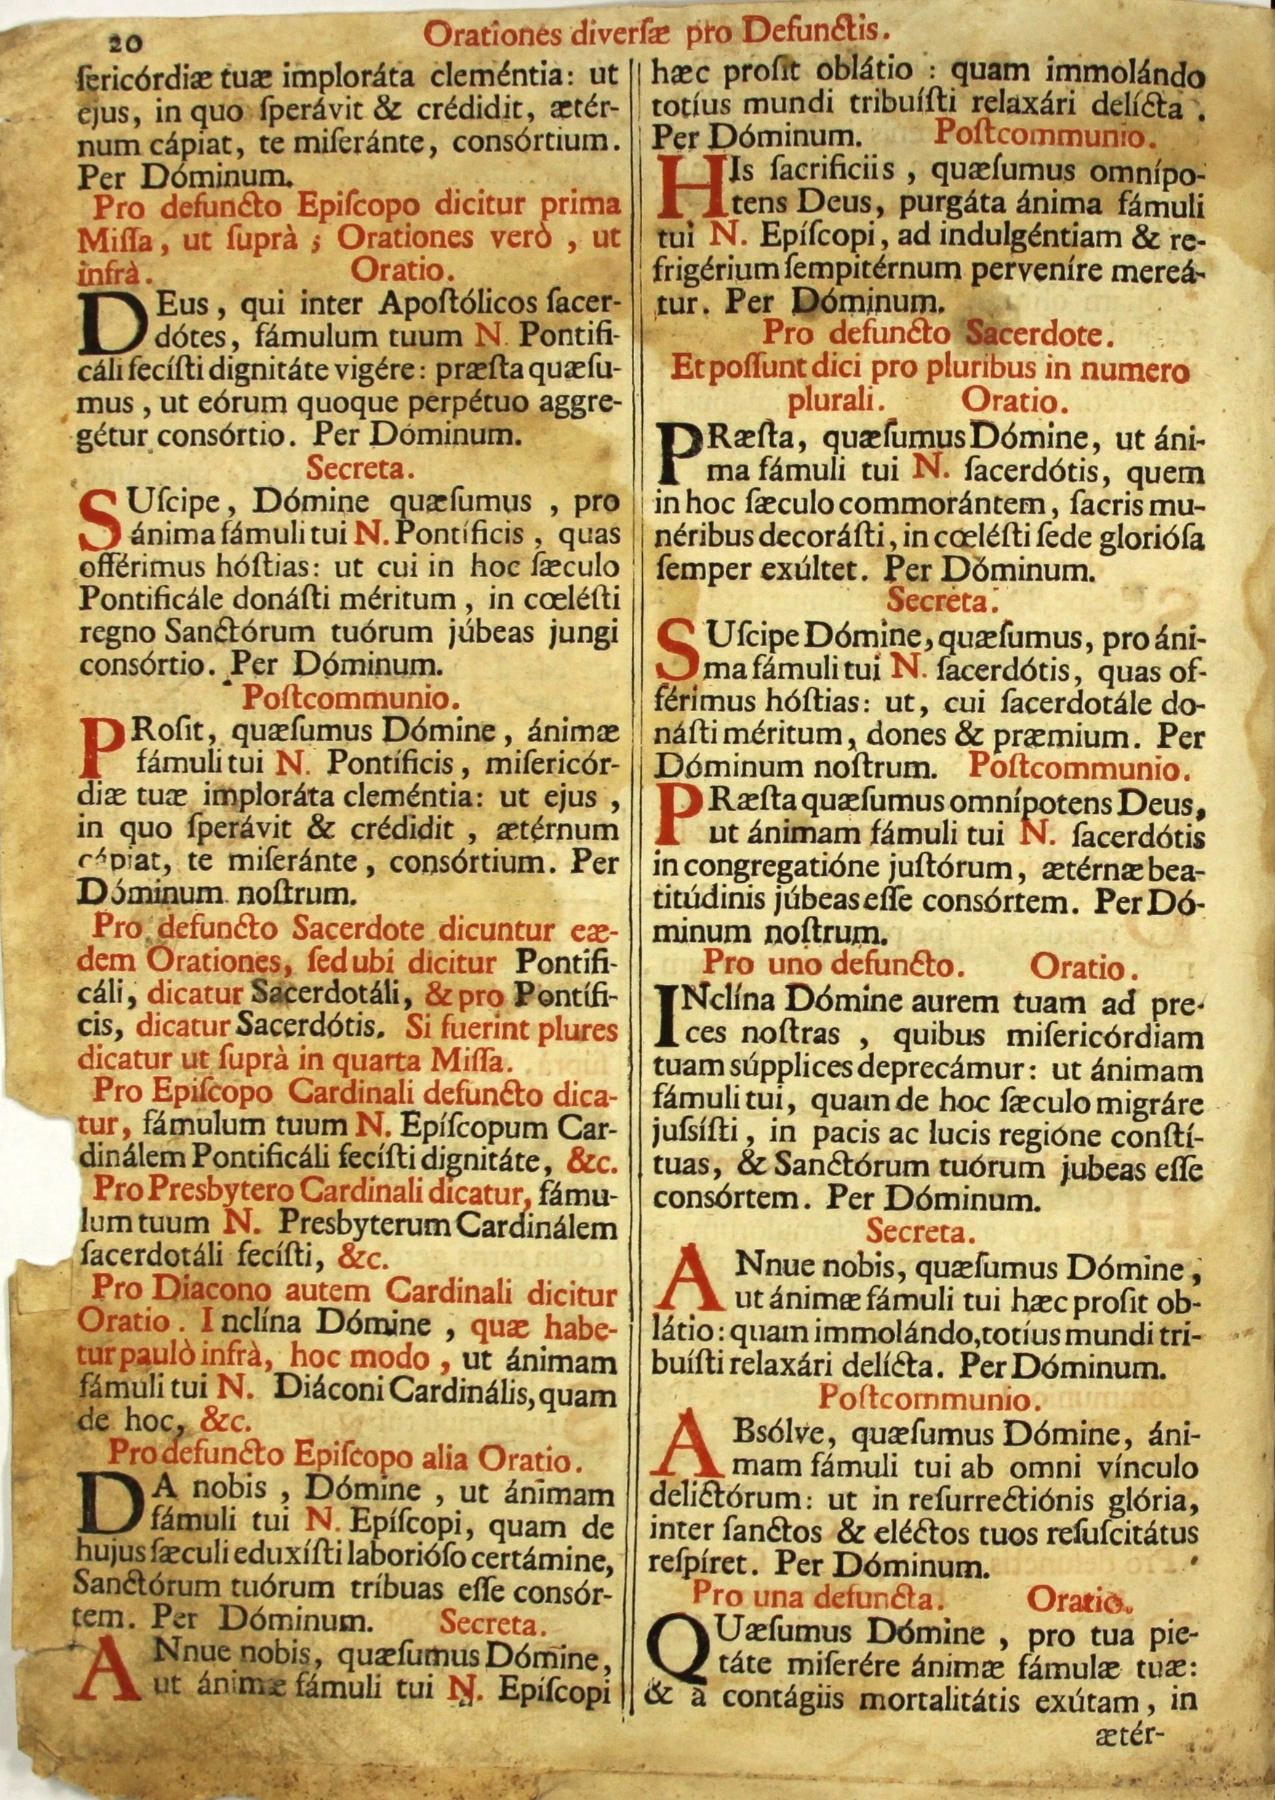 20
Orationes diverſæ pro Defunctis.
ſericórdiæ tuæ imploráta cleméntia: ut
ejus, in quo ſperávit & crédidit, ætér-
num cápiat, te miſeránte, consórtium.
Per Dóminum.
Pro defuncto Epiſcopo dicitur prima
Miſſa, ut ſuprà ; Orationes verò , ut
infrà. Oratio.
DEus , qui inter Apoſtólicos ſacer-
dótes, fámulum tuum N. Pontifi-
cáli fecíſti dignitáte vigére: præſta quæſu-
mus , ut eórum quoque perpétuo aggre-
gétur consórtio. Per Dóminum.
Secreta.
SUſcipe, Dómine quæſumus , pro
ánima fámuli tui N. Pontíficis , quas
offérimus hóſtias: ut cui in hoc ſæculo
Pontificále donáſti méritum , in cœléſti
regno Sanctórum tuórum júbeas jungi
consórtio. Per Dóminum.
Poſtcommunio.
PRoſit, quæſumus Dómine , ánimæ
fámuli tui N. Pontíficis , miſericór-
diæ tuæ imploráta cleméntia: ut ejus ,
in quo ſperávit & crédidit , ætérnum
cápiat, te miſeránte , consórtium. Per
Dóminum noſtrum.
Pro defuncto Sacerdote dicuntur eæ-
dem Orationes, ſed ubi dicitur Pontifi-
cáli, dicatur Sacerdotáli, & pro Pontífi-
cis, dicatur Sacerdótis. Si fuerint plures
dicatur ut ſuprà in quarta Miſſa.
Pro Epiſcopo Cardinali defuncto dica-
tur, fámulum tuum N. Epíſcopum Car-
dinálem Pontificáli fecíſti dignitáte, &c.
Pro Presbytero Cardinali dicatur, fámu-
lum tuum N. Presbyterum Cardinálem
ſacerdotáli fecíſti, &c.
Pro Diacono autem Cardinali dicitur
Oratio. Inclína Dómine , quæ habe-
tur paulò infrà, hoc modo , ut ánimam
fámuli tui N. Diáconi Cardinális, quam
de hoc, &c.
Pro defuncto Epiſcopo alia Oratio.
DA nobis , Dómine , ut ánimam
fámuli tui N. Epíſcopi, quam de
hujus ſæculi eduxíſti laborióſo certámine,
Sanctórum tuórum tríbuas eſſe consór-
tem. Per Dóminum. Secreta.
ANnue nobis, quæſumus Dómine,
ut ánimæ fámuli tui N. Epíſcopi
hæc proſit oblátio : quam immolándo
totíus mundi tribuíſti relaxári delícta .
Per Dóminum. Poſtcommunio.
HIs ſacrificiis , quæſumus omnípo-
tens Deus, purgáta ánima fámuli
tui N. Epíſcopi, ad indulgéntiam & re-
frigérium ſempitérnum perveníre mereá-
tur. Per Dóminum.
Pro defuncto Sacerdote.
Et poſſunt dici pro pluribus in numero
plurali. Oratio.
PRæſta, quæſumus Dómine, ut áni-
ma fámuli tui N. ſacerdótis, quem
in hoc ſæculo commorántem, ſacris mu-
néribus decoráſti, in cœléſti ſede glorióſa
ſemper exúltet. Per Dóminum.
Secreta.
SUſcipe Dómine, quæſumus, pro áni-
ma fámuli tui N. ſacerdótis, quas of-
férimus hóſtias: ut, cui ſacerdotále do-
náſti méritum, dones & præmium. Per
Dóminum noſtrum. Poſtcommunio.
PRæſta quæſumus omnípotens Deus,
ut ánimam fámuli tui N. ſacerdótis
in congregatióne juſtórum, ætérnæ bea-
titúdinis júbeas eſſe consórtem. Per Dó-
minum noſtrum.
Pro uno defuncto. Oratio.
INclína Dómine aurem tuam ad pre-
ces noſtras , quibus miſericórdiam
tuam súpplices deprecámur: ut ánimam
fámuli tui, quam de hoc ſæculo migráre
juſsíſti, in pacis ac lucis regióne conſtí-
tuas, & Sanctórum tuórum jubeas eſſe
consórtem. Per Dóminum.
Secreta.
ANnue nobis, quæſumus Dómine,
ut ánimæ fámuli tui hæc proſit ob-
látio: quam immolándo, totíus mundi tri-
buíſti relaxári delícta. Per Dóminum.
Poſtcommunio.
ABsólve, quæſumus Dómine, áni-
mam fámuli tui ab omni vínculo
delictórum: ut in reſurrectiónis glória,
inter ſanctos & eléctos tuos reſuſcitátus
reſpíret. Per Dóminum.
Pro una defuncta. Oratio.
QUæſumus Dómine , pro tua pie-
táte miſerére ánimæ fámulæ tuæ:
& a contágiis mortalitátis exútam , in
ætér-